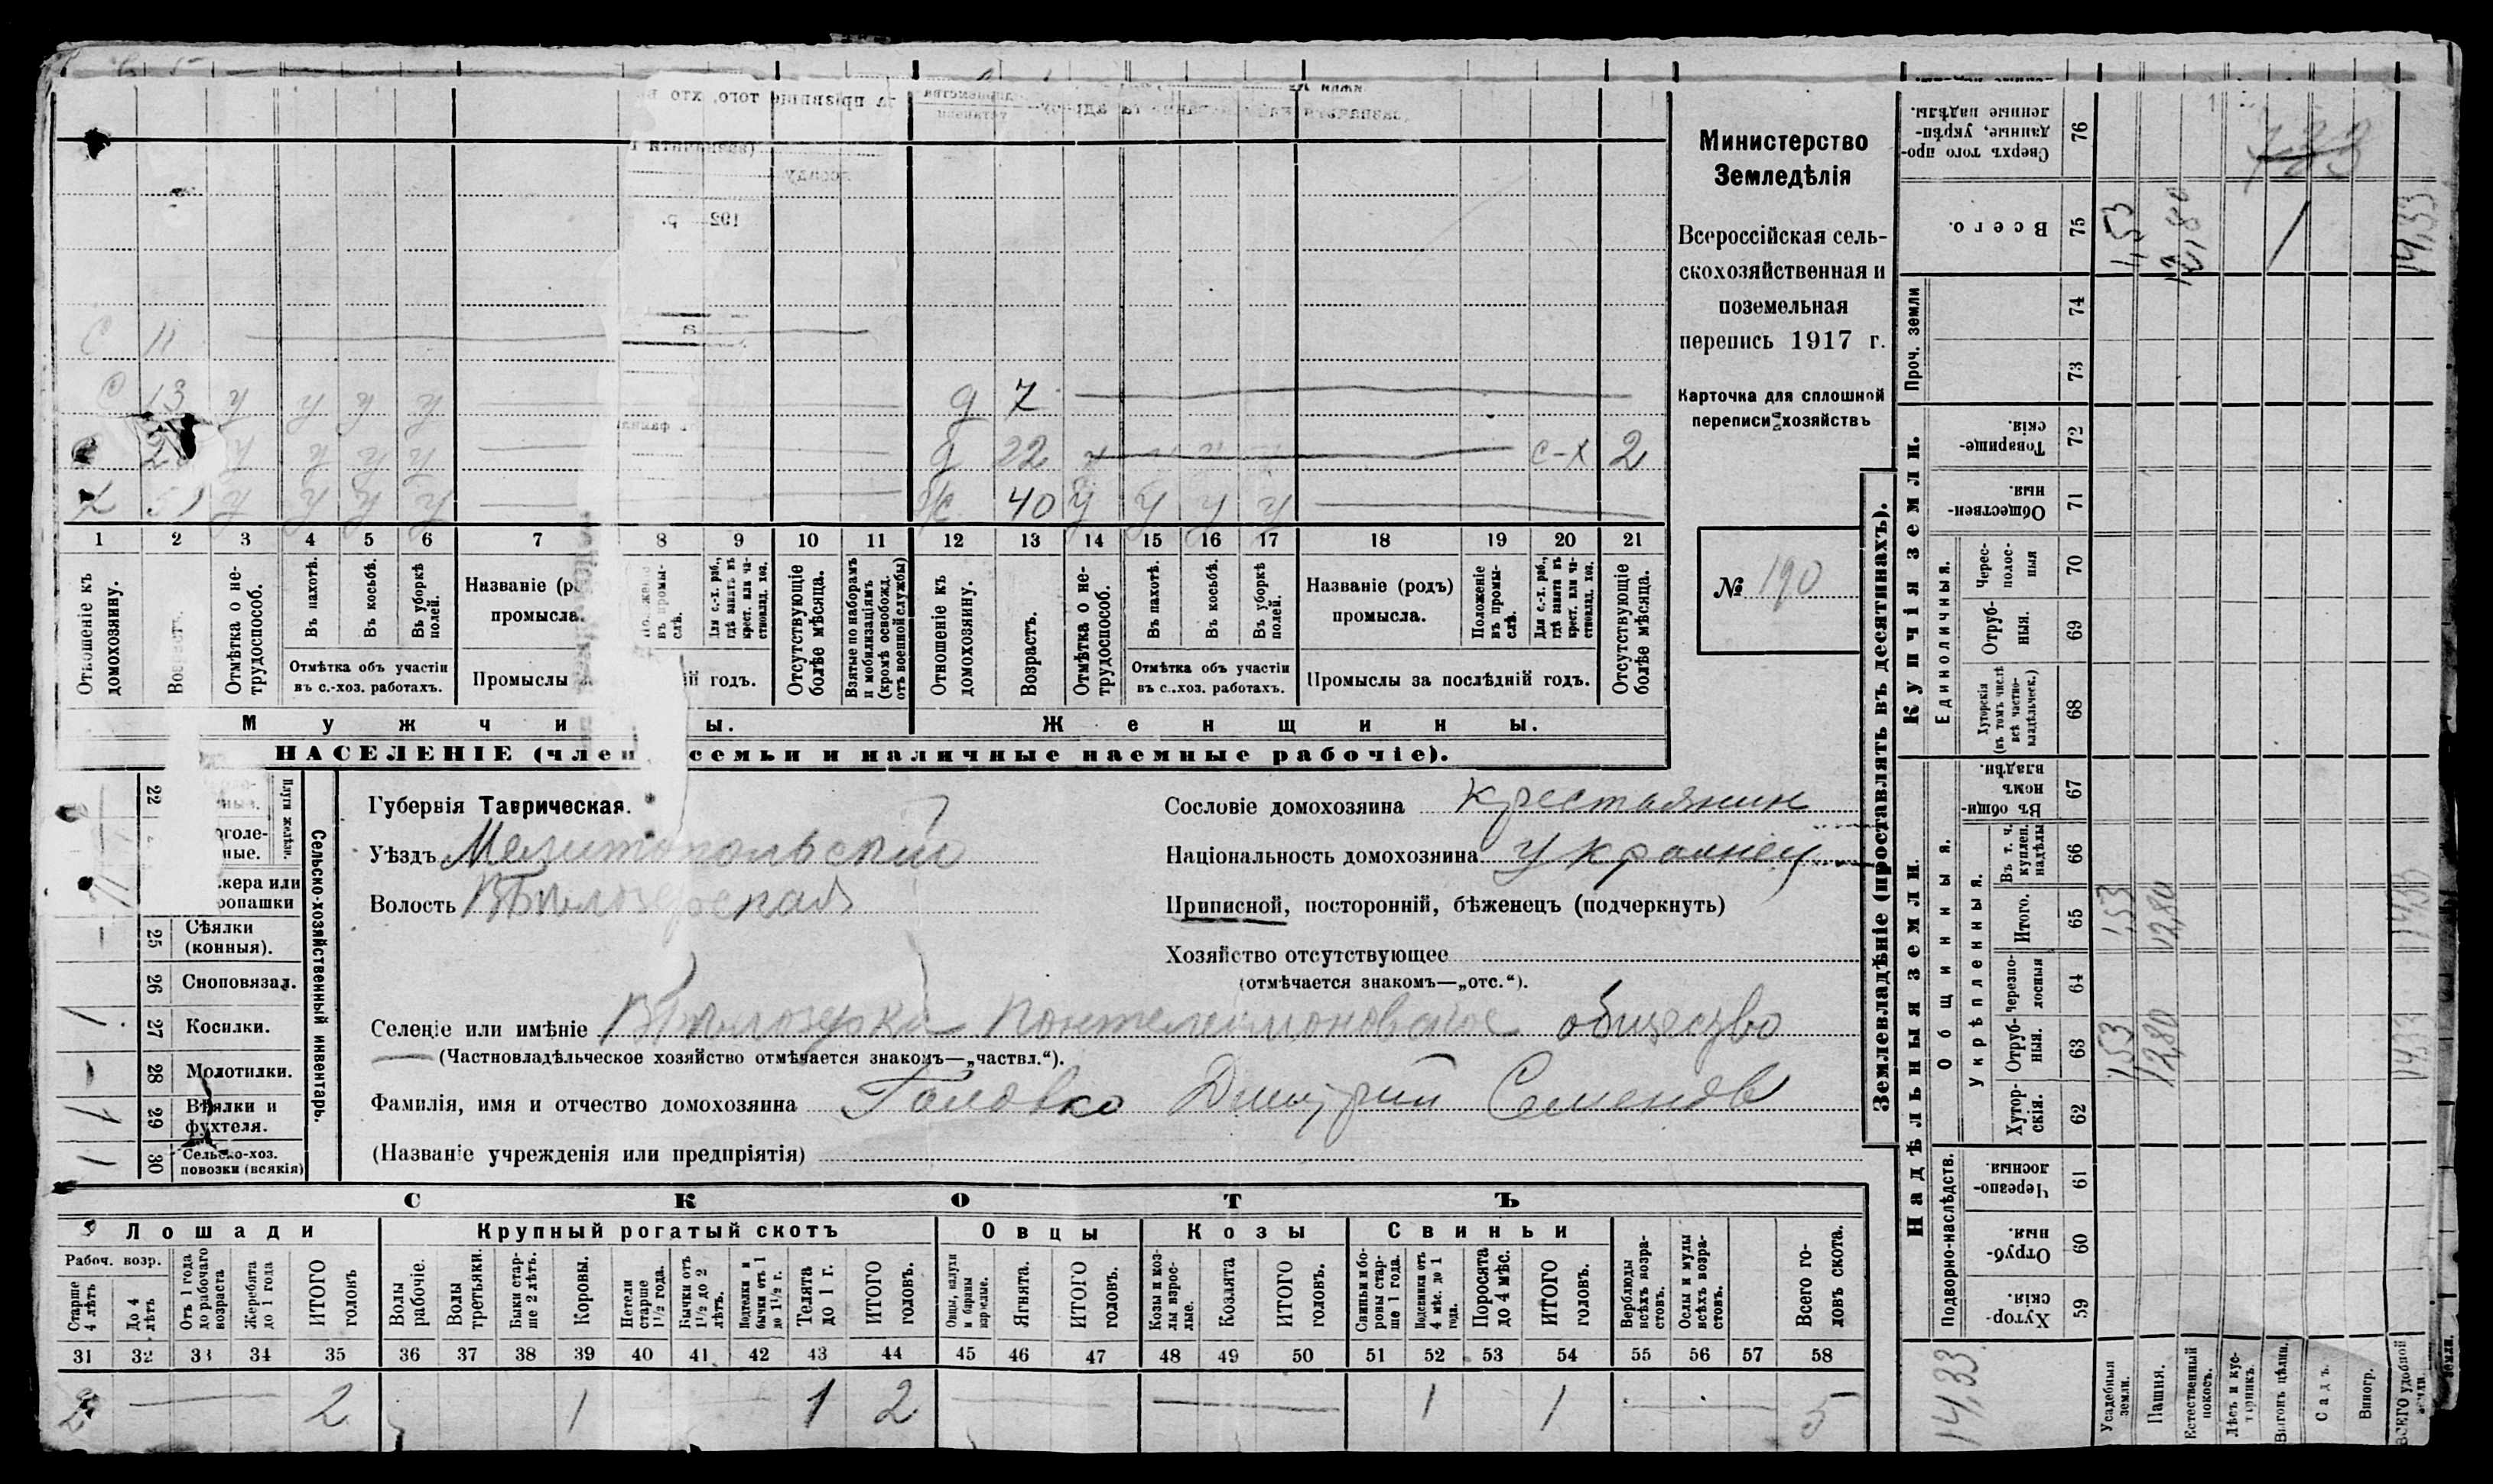 Министерство
Земледѣлія
Всероссійская сель-
скохозяйственная и
поземельная
перепись 1917 г.
Карточка для сплошной
переписи хозяйствъ
№ 190
С 11
С 13 у у у у
у у у у
51 у у у у
д 7
д 22 с-х 2
ж 40 у у у у
1 2 3 4 5 6 7 8 9 10 11 12 13 14 15 16 17 18 19 20 21
Отношеніе къ домохозяину.
Возрастъ.
Отмѣтка о не-трудоспособ.
Въ пахотѣ.
Въ косьбѣ.
Въ уборкѣ полей.
Отмѣтка объ участіи
въ с.-хоз. работахъ.
Названіе (р
промысла.
Промыслы
й годъ.
Для с.-х. раб., гдѣ занятъ въ крест. или ча-стновлад. хоз.
Отсутствующіе болѣе мѣсяца.
Взятые по наборамъ и мобилизаціямъ (кромѣ освобожд. отъ военной службы)
Отношеніе къ домохозяину.
Возрастъ.
Отмѣтка о не-трудоспособ.
Въ пахотѣ.
Въ косьбѣ.
Въ уборкѣ полей.
Отмѣтка объ участіи
въ с.-хоз. работахъ.
Названіе (родъ)
промысла.
Положеніе въ промы-слѣ.
Для с.-х. раб., гдѣ занятъ въ крест. или ча-стновлад. хоз.
Промыслы за послѣдній годъ.
Отсутствующіе болѣе мѣсяца.
М у ж ч и ы.
Ж е н щ и н ы.
НАСЕЛЕНІЕ (член семьи и наличные наемные рабочіе).
Сельско-хозяйственный инвентарь.
Плуги желѣзн.
22
кера или
ропашки
25 Сѣялки
(конныя).
26 Сноповязал.
27 Косилки. 1
28 Молотилки.
29 Вѣялки и
фухтеля. 1
30 Сельско-хоз.
повозки (всякія) 1
Губернія Таврическая.
Уѣздъ Мелитопольскій
Волость Бѣлозерская
Сословіе домохозяина крестьянин
Національность домохозяина украинец
Приписной, посторонній, бѣженецъ (подчеркнуть)
Хозяйство отсутствующее
(отмѣчается знакомъ—„отс.“).
Селеніе или имѣніе Бѣлозерка Понтелеимоновское общество
(Частновладѣльческое хозяйство отмѣчается знакомъ—„частвл.“).
Фамилія, имя и отчество домохозяина Головко Дмитрий Семенов
(Названіе учрежденія или предпріятія)
С К О Т Ъ
Лошади Крупный рогатый скотъ Овцы Козы Свиньи
Рабоч. возр.
Старше 4 лѣтъ
До 4 лѣтъ
Отъ 1 года до рабочаго возраста
Жеребята до 1 года
ИТОГО головъ
Волы рабочіе.
Волы третьяки.
Быки стар-ше 2 лѣтъ.
Коровы.
Нетели старше 1½ года.
Бычки отъ 1½ до 2 лѣтъ.
Подтелки и бычки отъ 1 до 1½ г.
Телята до 1 г.
ИТОГО головъ.
Овцы, валухи и бараны взрослые.
Ягнята.
ИТОГО головъ.
Козы и коз-лы взрос-лые.
Козлята
ИТОГО головъ.
Свиньи и бо-ровы стар-ше 1 года.
Подсвинки отъ 4 мѣс. до 1 года.
Поросята до 4 мѣс.
ИТОГО головъ.
Верблюды всѣхъ возра-стовъ.
Ослы и мулы всѣхъ возра-стовъ.
Всего го-ловъ скота.
31 32 33 34 35 36 37 38 39 40 41 42 43 44 45 46 47 48 49 50 51 52 53 54 55 56 57 58
2 2 1 1 2 1 1 5
Землевладѣніе (проставлять въ десятинахъ).
Надѣльныя земли.
Купчія земли.
Проч. земли
Подворно-наслѣдств.
Общинныя.
Укрѣпленныя.
Единоличныя.
Хутор-скія. 59
Отруб-ныя. 60
Черезпо-лосныя. 61
Хутор-скія. 62
Отруб-ныя. 63
Черезпо-лосныя 64
Итого. 65
Въ т. ч. куплен. надѣлы 66
Въ общи-номъ владѣн. 67
Хуторскія (въ томъ числѣ всѣ частно-владѣльческ.) 68
Отруб-ныя. 69
Черес-полос-ныя 70
Обществен-ныя. 71
Товарище-скія. 72
73
74
Всего. 75
Сверхъ того про-данные, укрѣп-ленные надѣлы. 76
Усадебныя земли. 1,53 1,53 1,53
Пашня. 12,80 12,80 12,80
Естественный покосъ.
Лѣсъ и кус-тарникъ.
Выгонъ цѣлин.
Садъ.
Виногр.
ВСЕГО удобной земли. 14,33 14,33 14,33
14,33